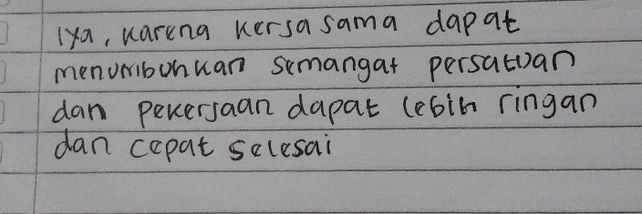 Iya, karena kersa sama dapat
menumbuhkan semangat persatuan
dan pekerjaan dapat lebih ringan
dan cepat selesai